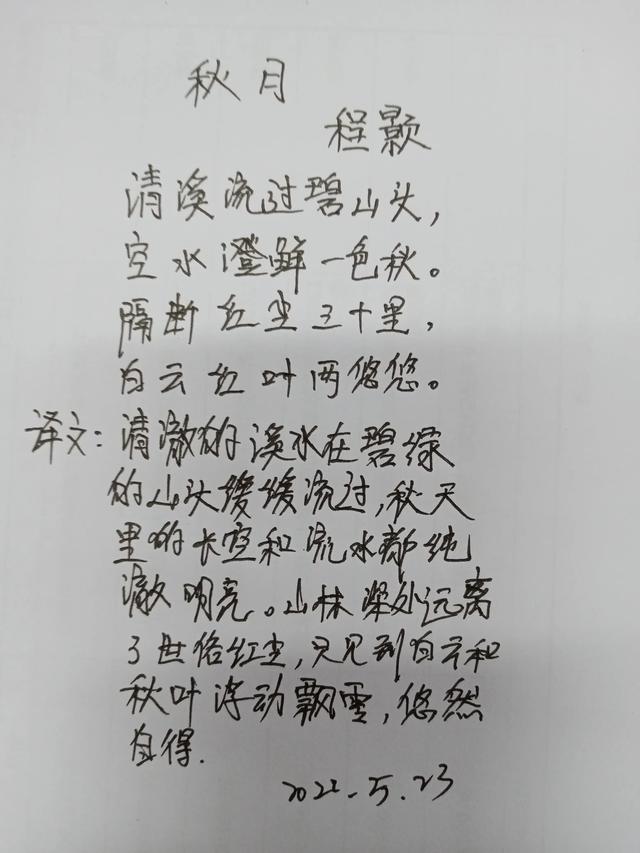 秋月
程颢
清溪流过碧山头，
空水澄鲜一色秋。
隔断红尘三十里，
白云红叶两悠悠。
译文：清澈的溪水在碧绿
的山头缓缓流过，秋天
里的长空和流水都纯
澈明亮。山林深处远离
了世俗红尘，只见到白云和
秋叶浮动飘零，悠然
自得.
2022.5.23